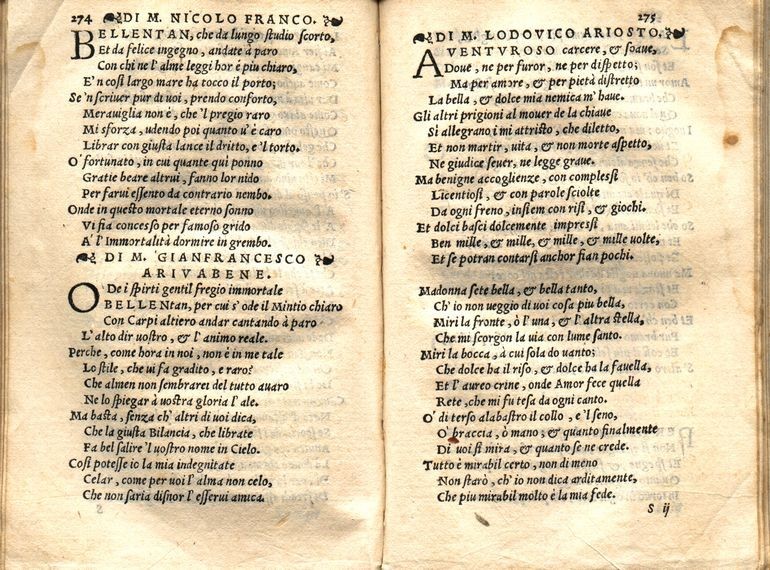 274 DI M. NICOLO FRANCO.
BELLENTAN, che da lungo studio scorto,
Et da felice ingegno, andate à paro
Con chi ne l'alme leggi hor é piu chiaro,
E'n cosi largo mare ha tocco il porto;
Se'n scriuer pur di uoi, prendo conforto,
Merauiglia non è, che'l pregio raro
Mi sforza, udendo poi quanto u'è caro
Librar con giusta lance il dritto, e'l torto.
O' fortunato, in cui quante quì ponno
Gratie beare altrui, fanno lor nido
Per farui essento da contrario nembo.
Onde in questo mortale eterno sonno
Vi fia concesso per famoso grido
A' l'Immortalità dormire in grembo.
DI M. GIANFRANCESCO
ARIVABENE.
O De i spirti gentil fregio immortale
BELLENtan, per cui s'ode il Mintio chiaro
Con Carpi altiero andar cantando à paro
L'alto dir uostro, & l'animo reale.
Perche, come hora in uoi, non è in me tale
Lo stile, che ui fa gradito, e raro?
Che almen non sembrarei del tutto auaro
Ne lo spiegar à uostra gloria l'ale.
Ma basta, senza ch'altri di uoi dica,
Che la giusta Bilancia, che librate
Fa bel salire l'uostro nome in Cielo.
Cosi potesse io la mia indegnitate
Celar, come per uoi l'alma non celo,
Che non saria disnor l'esserui amica.
275
DI M. LODOVICO ARIOSTO.
AVENTVROSO carcere, & soaue,
Doue, ne per furor, ne per dispetto;
Ma per amore, & per pietà distretto
La bella, & dolce mia nemica m'haue.
Gli altri prigioni al mouer de la chiaue
Si allegrano; i mi attristo, che diletto,
Et non martir, uita, & non morte aspetto,
Ne giudice seuer, ne legge graue.
Ma benigne accoglienze, con complessi
Licentiosi, & con parole sciolte
Da ogni freno, insiem con risi, & giochi.
Et dolci basci dolcemente impressi
Ben mille, & mille, & mille, & mille uolte,
Et se potran contarsi anchor fian pochi.
Madonna sete bella, & bella tanto,
Ch'io non ueggio di uoi cosa piu bella,
Miri la fronte, ò l'una, & l'altra stella,
Che mi scorgon la uia con lume santo.
Miri la bocca, à cui sola do uanto;
Che dolce ha il riso, & dolce ha la fauella,
Et l'aureo crine, onde Amor fece quella
Rete, che mi fu tesa da ogni canto.
O' di terso alabastro il collo, e'l seno,
O' braccia, ò mano; & quanto finalmente
Di uoi si mira, & quanto se ne crede.
Tutto è mirabil certo, non di meno
Non starò, ch'io non dica arditamente,
Che piu mirabil molto è la mia fede.
S ij